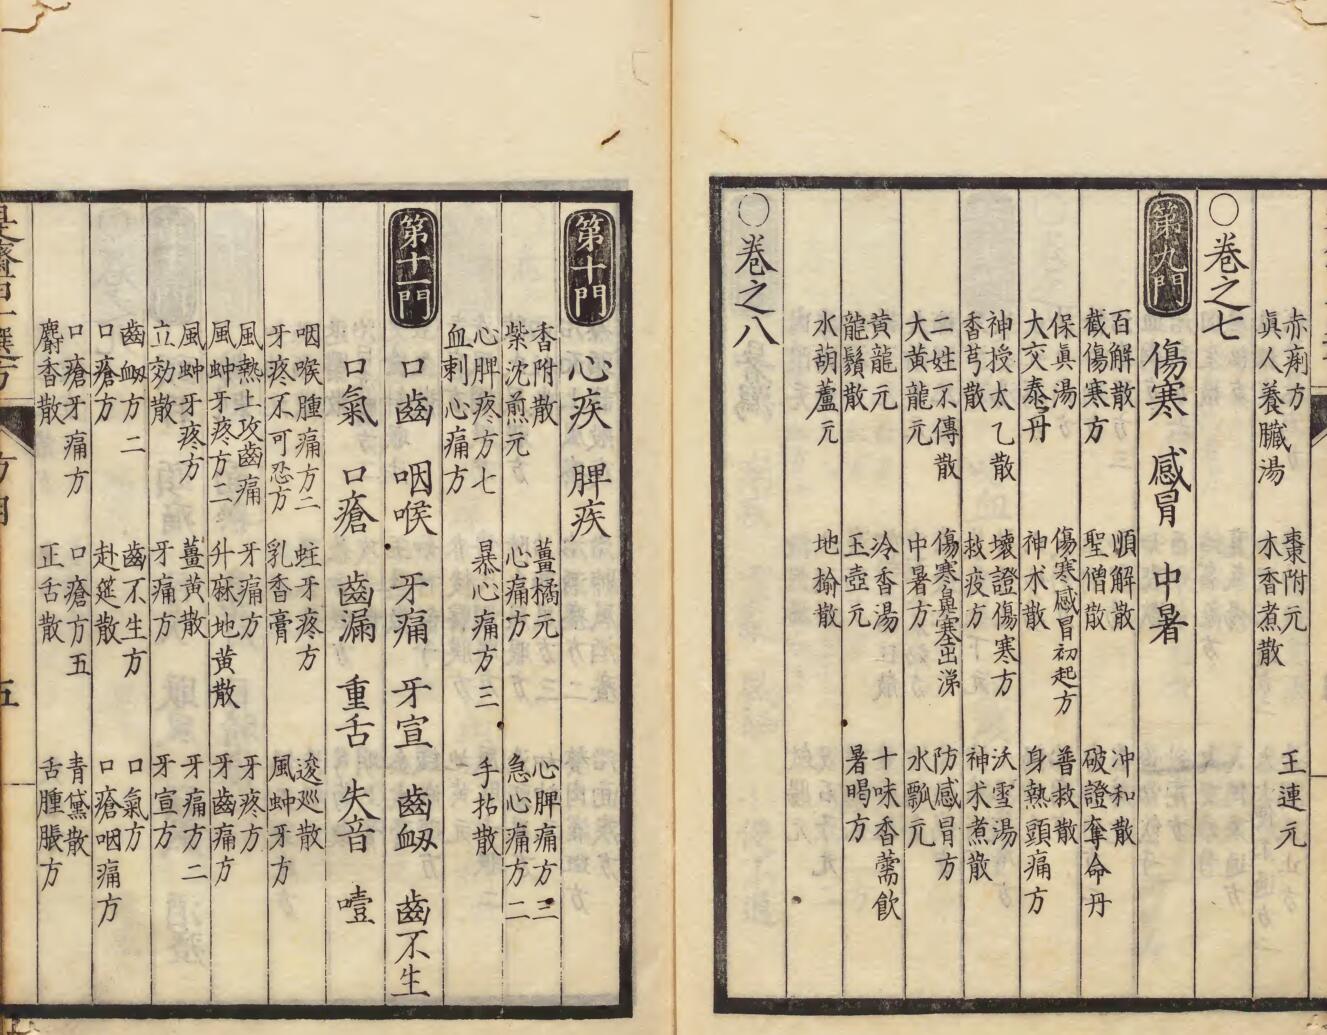 赤痢方　棗附元　王連元
眞人養臟湯　木香煮散
〇卷之七
第九門　傷寒　感冒　中暑
百解散　順解散　冲和散
截傷寒方　聖僧散　破證奪命丹
保眞湯　傷寒感冒初起方　普救散
大交泰丹　神术散　身熱頭痛方
神授太乙散　壞證傷寒方　沃雪湯
香芎散　救疫方　神术煮散
二姓不傳散　傷寒鼻塞出涕　防感冒方
大黃龍元　中暑方　水瓢元
黃龍元　冷香湯　十味香薷飲
龍鬚散　玉壺元　暑暍方
水葫蘆元　地榆散
〇卷之八
第十門　心疾　脾疾
香附散　薑橘元　心脾痛方三
紫沈煎元　心痛方　急心痛方二
心脾疼方七　暴心痛方三　手拈散
血刺心痛方
第十一門　口齒　咽喉　牙痛　牙宣　齒衂　齒不生
口氣　口瘡　齒漏　重舌　失音　噎
咽喉腫痛方二　蛀牙疼方　逡巡散
牙疼不可忍方　乳香膏　風蚛牙方
風熱上攻齒痛　牙痛方　牙疼方
風蚛牙疼方二　升麻地黃散　牙齒痛方
風蚛牙疼方　薑黃散　牙痛方二
立効散　牙痛方　牙宣方
齒衂方二　齒不生方　口氣方
口瘡方　赴筵散　口瘡咽痛方
口瘡牙痛方　口瘡方五　青黛散
麝香散　正舌散　舌腫脹方